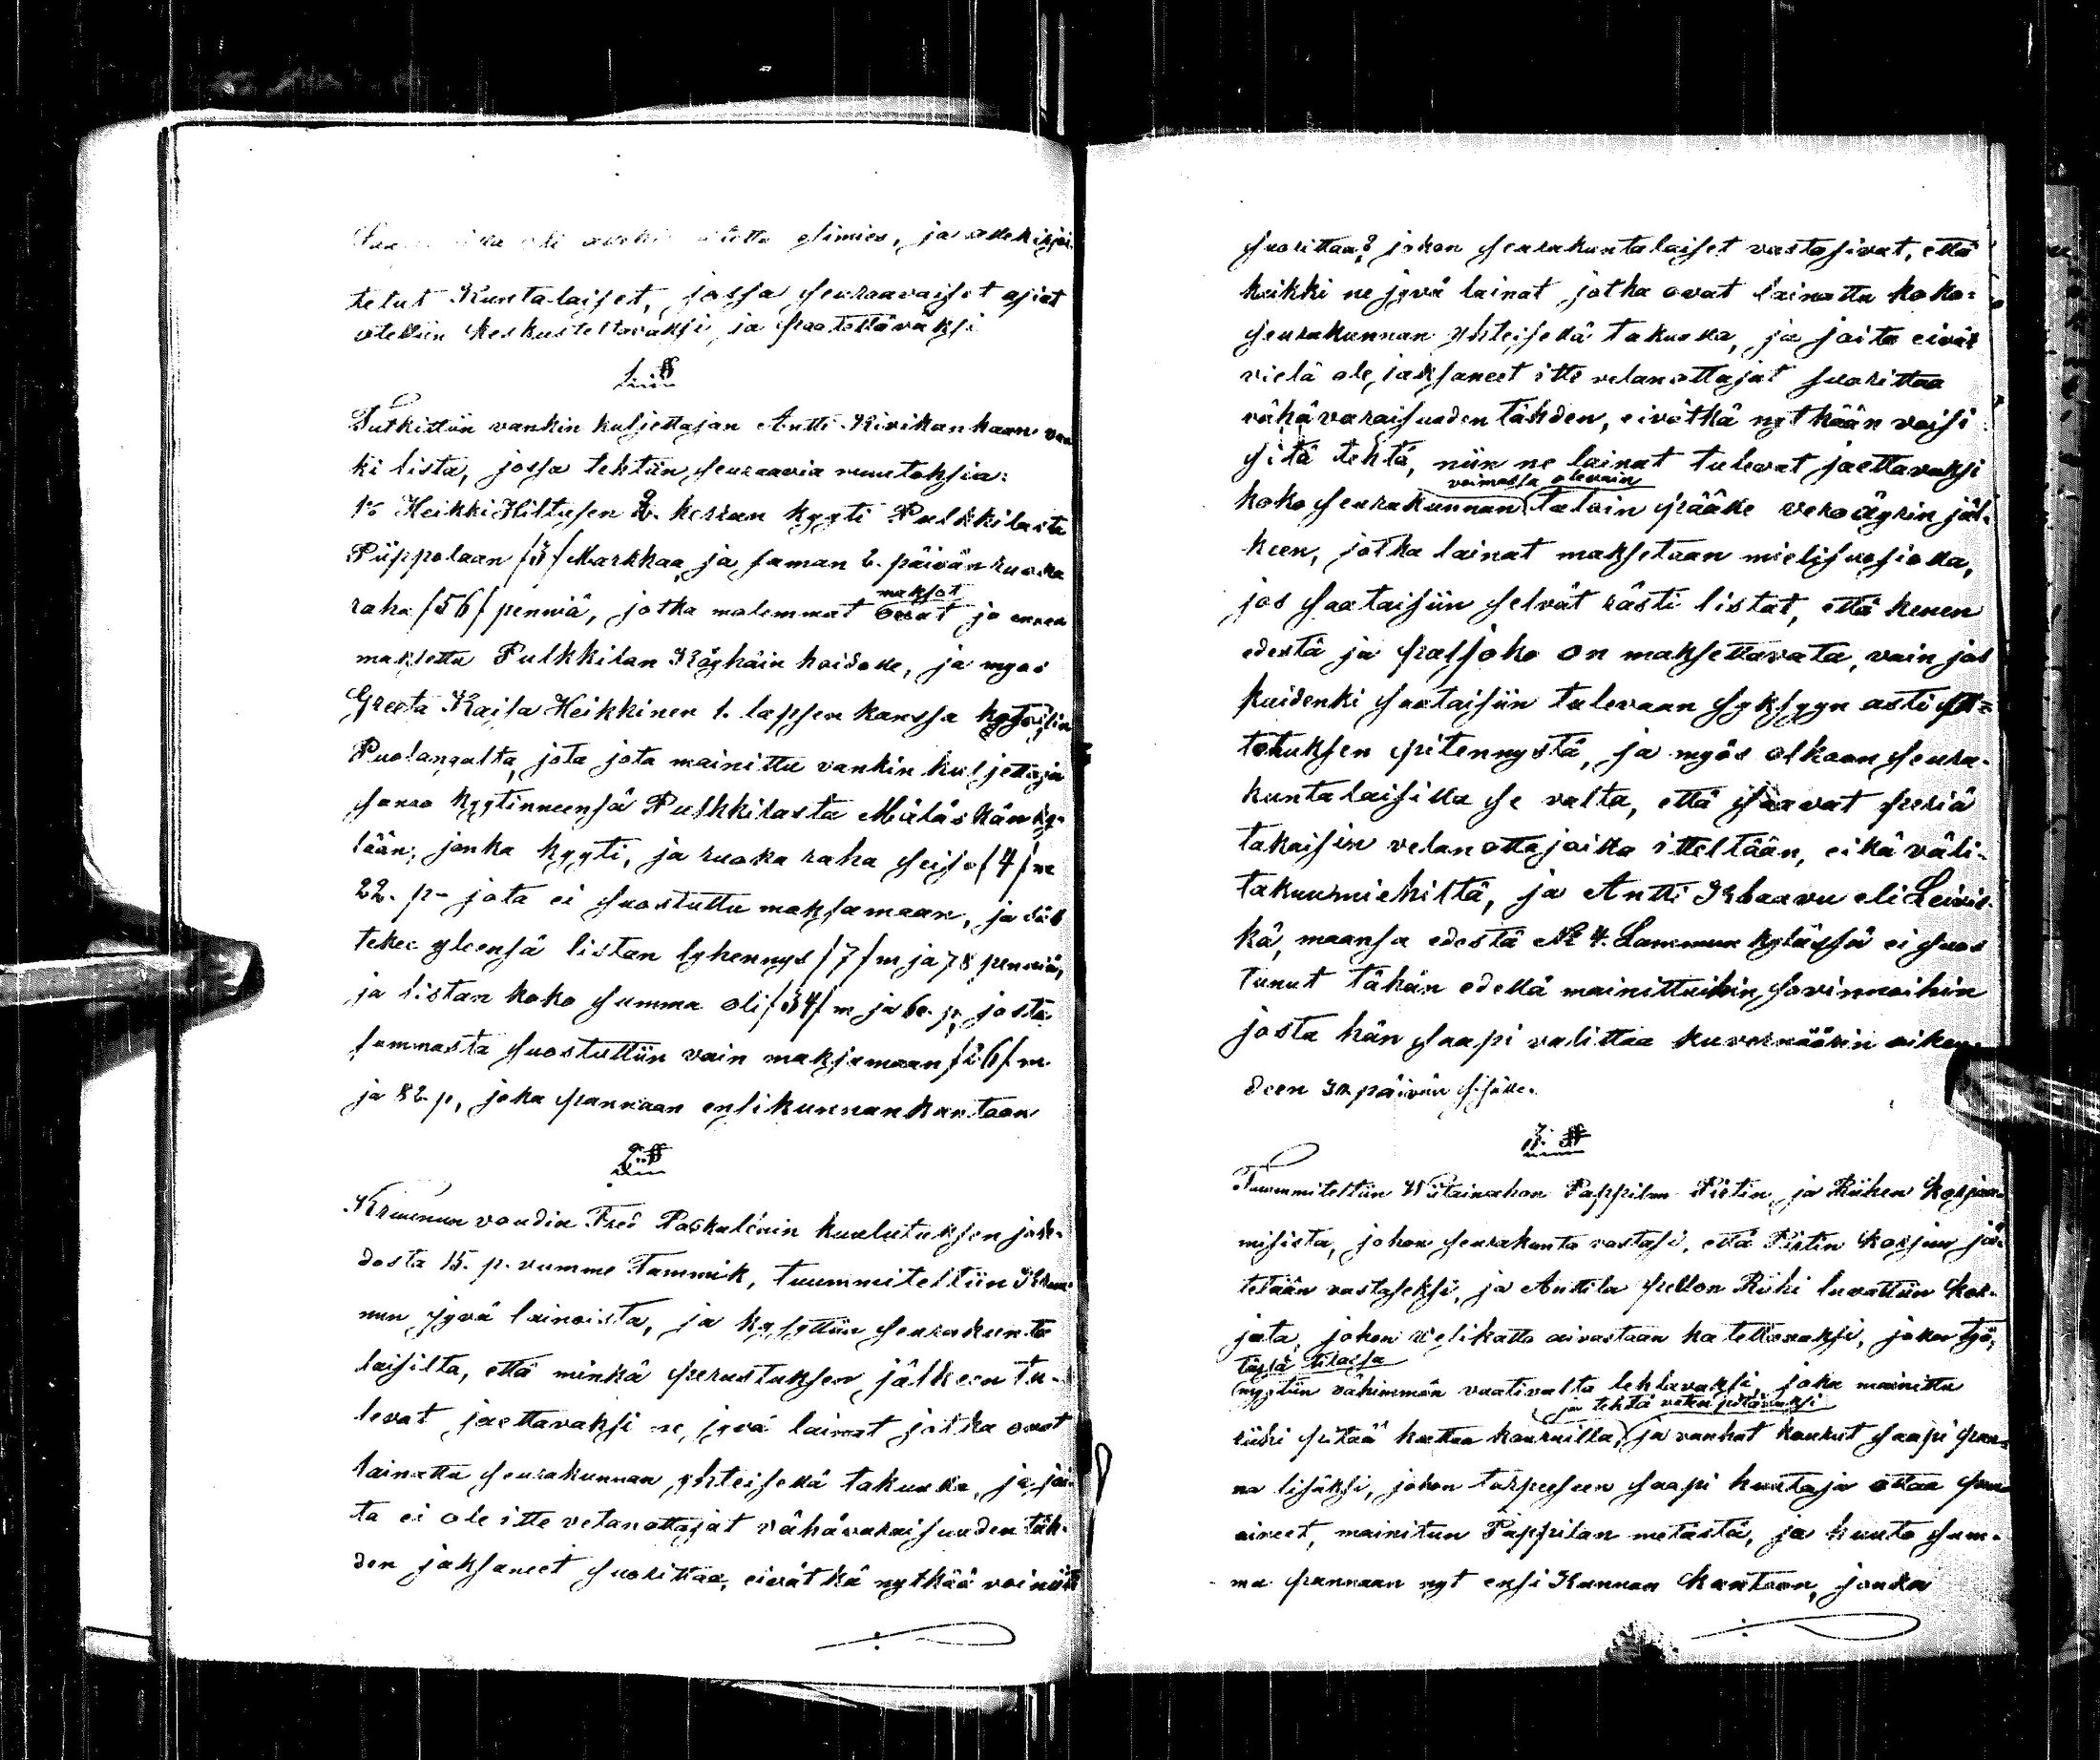 oli esimies, ja allekirjoi-
tetut Kuntalaiset, jossa seuraavaiset asiat
otettiin keskusteltavaksi ja paatettäväksi
1. §
Tutkittiin vankin kuljettajan Antti Kirikankaan van
ki lista, jossa tehtiin seuraavia muutoksia:
1:o Heikki Hiltusen 2. kerran kyyti Pulkkilasta
Piippolaan /3/ Markkaa, ja saman 2. päivän ruoka
raha /56/ penniä, jotka molemmat maksot ovat jo ennen
maksettu Pulkkilan Köyhäin hoidolle, ja myös
Greeta Kaisa Heikkinen 1. lapsen kanssa
Puolangalta, jota jota mainittu vankin kuljettaja
sanoo kyytinneensä Pulkkilasta Mäläskän ky-
lään, jonka kyyti, ja ruoka raha seiso /4/ m
22. p- jota ei suostuttu maksamaan, ja siis
tekee yleensä listan lyhennys /7/ m ja 78 penniä,
ja listan koko summa oli /34/ m ja 60. p, josta
summasta suostuttiin vain maksamaan /26/ m
ja 82 p, joka pannaan ensi kunnan kantoon
2. §
Kruunun voudin Fred Paskulénin kuulutuksen joh-
dosta 15. p. vumme Tammik, tuummiteltiin Kruu-
nun jyvä lainoista, ja kysyttiin seurakunta
laisilta, että minkä perustuksen jälkeen tu-
levat jaettavaksi ne jyvä lainat jotka ovat
lainattu seurakunnan yhteisellä takuulla, ja joi-
ta ei ole itte velanottajat vähävaraisuuden täh-
den jaksaneet suorittaa, eivätkä nytkää voi niitä
suorittaa? johon seurakuntalaiset vastasivat, että
kaikki ne jyvä lainat jotka ovat lainattu koko-
seurakunnan yhteisellä takuulla, ja joita eivät
vielä ole jaksaneet itte velanottajat suorittaa
vähävaraisuuden tähden, eivätkä nytkään voisi
sitä tehtä, niin ne lainat tulevat jaettavaksi
voimassa olevain
koko seurakunnan taloin päälle veroäyrin jäl-
keen, jotka lainat maksetaan mielisuosiolla,
jos saataisiin selvät rästi listat, että kenen
edestä ja paljoko on maksettavata, vain jos
kuidenki saataisiin tulevaan syksyyn asti
totuksen pitennystä, ja myös olkoon seura-
kuntalaisilla se valta, että saavat periä
takaisin velanottajoilta itteltään, eikä väli-
takuumiehiltä, ja Antti Krbaavu eli Leivis-
kä, maansa edestä No 4. Lammun kylässä ei suos
tunut tähän edellä mainittuihin sovinnoihin
josta hän saapi valittaa kuvernöörin oikeu-
deen 30 päivän sisälle.
3. §
Tuummiteltiin Wiitainahon Pappilan Pirtin ja Riihen korjaa-
misista, johon seurakunta vastasi, että Pirtin korjuu jä-
tetään vastaseksi, ja Anttila pellon Riihi luvattiin kor-
jata, johon velikatto aivastaan katettavaksi, joka työ,
tässä tilassa
myytiin vähimmän vaativalta tehtavaksi, joka mainittu
ja tehtä
riihi pitää kattaa kouruilla, ja vanhat kourut saapi pan-
na lisäksi, johon tarpeeseen saapi huutaja ottaa puu
aineet, mainitun Pappilan metästä, ja huuto sum-
ma pannaan nyt ensi Kunnan kantoon, jonka